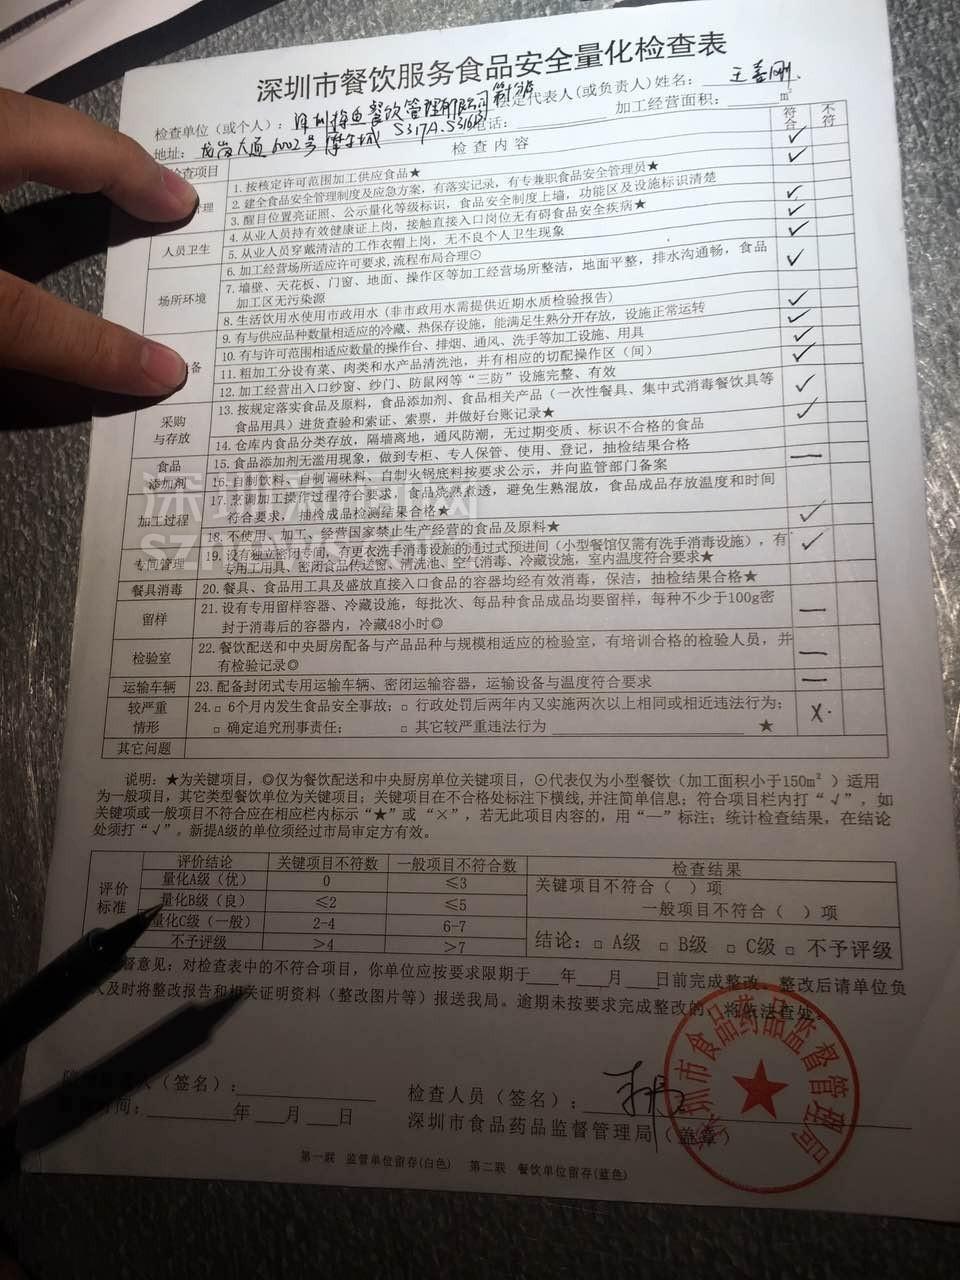 深圳市餐饮服务食品安全量化检查表
检查单位（或个人）： 餐饮管理有限公司 法定代表人(或负责人)姓名：
地址： 龙岗大道6002号 S317A.S316B 电话： 加工经营面积： ㎡
检查项目 检查内容 符合 不符
管理 1. 按核定许可范围加工供应食品★ ✓
2. 建全食品安全管理制度及应急方案，有落实记录，有专兼职食品安全管理员★ ✓
3. 醒目位置亮证照、公示量化等级标识，食品安全制度上墙，功能区及设施标识清楚
人员卫生 4. 从业人员持有效健康证上岗，接触直接入口岗位无有碍食品安全疾病★ ✓
5. 从业人员穿戴清洁的工作衣帽上岗，无不良个人卫生现象 ✓
场所环境 6. 加工经营场所适应许可要求,流程布局合理⊙ ✓
7. 墙壁、天花板、门窗、地面、操作区等加工经营场所整洁，地面平整，排水沟通畅，食品
加工区无污染源 ✓
8. 生活饮用水使用市政用水（非市政用水需提供近期水质检验报告）
备 9. 有与供应品种数量相适应的冷藏、热保存设施，能满足生熟分开存放，设施正常运转 ✓
10. 有与许可范围相适应数量的操作台、排烟、通风、洗手等加工设施、用具 ✓
11. 粗加工分设有菜、肉类和水产品清洗池，并有相应的切配操作区（间） ✓
12. 加工经营出入口纱窗、纱门、防鼠网等“三防”设施完整、有效 ✓
采购与存放 13. 按规定落实食品及原料，食品添加剂、食品相关产品（一次性餐具、集中式消毒餐饮具等
食品用具）进货查验和索证、索票，并做好台账记录★ ✓
14. 仓库内食品分类存放，隔墙离地，通风防潮，无过期变质、标识不合格的食品 ✓
食品添加剂 15. 食品添加剂无滥用现象，做到专柜、专人保管、使用、登记，抽检结果合格
16. 自制饮料、自制调味料、自制火锅底料按要求公示，并向监管部门备案 —
加工过程 17. 烹调加工操作过程符合要求，食品烧熟煮透，避免生熟混放，食品成品存放温度和时间
符合要求，抽检成品检测结果合格★
18. 不使用、加工、经营国家禁止生产经营的食品及原料★ ✓
专间管理 19. 设有独立密闭专间，有更衣洗手消毒设施的通过式预进间（小型餐馆仅需有洗手消毒设施），有
专用工用具、密闭食品传送窗、清洗池、空气消毒、冷藏设施，室内温度符合要求★ ✓
餐具消毒 20. 餐具、食品用工具及盛放直接入口食品的容器均经有效消毒，保洁，抽检结果合格★
留样 21. 设有专用留样容器、冷藏设施，每批次、每品种食品成品均要留样，每种不少于100g密
封于消毒后的容器内，冷藏48小时◎ —
检验室 22. 餐饮配送和中央厨房配备与产品品种与规模相适应的检验室，有培训合格的检验人员，并
有检验记录◎ —
运输车辆 23. 配备封闭式专用运输车辆、密闭运输容器，运输设备与温度符合要求 —
较严重情形 24. □ 6个月内发生食品安全事故；□ 行政处罚后两年内又实施两次以上相同或相近违法行为；
□ 确定追究刑事责任； □ 其它较严重违法行为 ★ X
其它问题
说明：★为关键项目，◎仅为餐饮配送和中央厨房单位关键项目，⊙代表仅为小型餐饮（加工面积小于150m²）适用
为一般项目，其它类型餐饮单位为关键项目；关键项目在不合格处标注下横线,并注简单信息；符合项目栏内打“√”，如
关键项或一般项目不符合应在相应栏内标示“★”或“×”，若无此项目内容的，用“—”标注；统计检查结果，在结论
处须打“√”。新提A级的单位须经过市局审定方有效。
评价标准 评价结论 关键项目不符数 一般项目不符合数 检查结果
量化A级（优） 0 ≤3 关键项目不符合（ ）项
量化B级（良） ≤2 ≤5 一般项目不符合（ ）项
量化C级（一般） 2-4 6-7 结论：□ A级 □ B级 □ C级 □ 不予评级
不予评级 >4 >7
督意见：对检查表中的不符合项目，你单位应按要求限期于 年 月 日前完成整改。整改后请单位负
人及时将整改报告和相关证明资料（整改图片等）报送我局。逾期未按要求完成整改的，将依法查处。
人（签名）： 检查人员（签名）：
时间： 年 月 日 深圳市食品药品监督管理局（盖章）
深圳市食品药品监督管理局
第一联 监管单位留存(白色) 第二联 餐饮单位留存(蓝色)
深圳新闻网